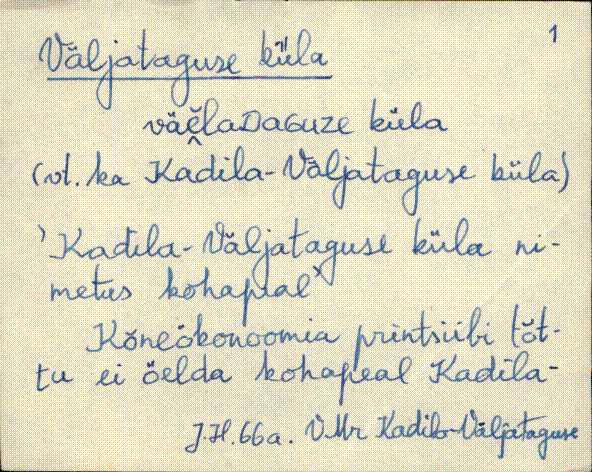 1
Väljataguse küla
väĕlaDAGUZE küla
(vt. ka Kadila-Väljataguse küla)
'Kadila-Väljataguse küla ni-
metus kohapeal'
Kõneökonoomia printsiibi tõt-
tu ei öelda kohapeal Kadila-
J.H. 66 a. V.Mr Kadila-Väljataguse